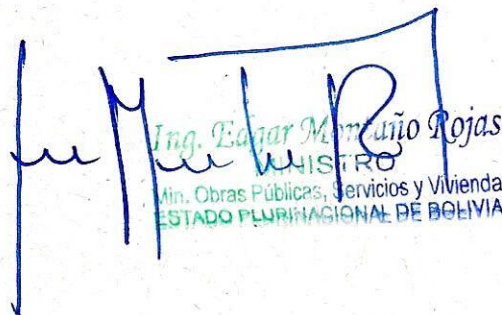 Ing. Edgar Montaño Rojas
MINISTRO
Min. Obras Públicas, Servicios y Vivienda
ESTADO PLURINACIONAL DE BOLIVIA